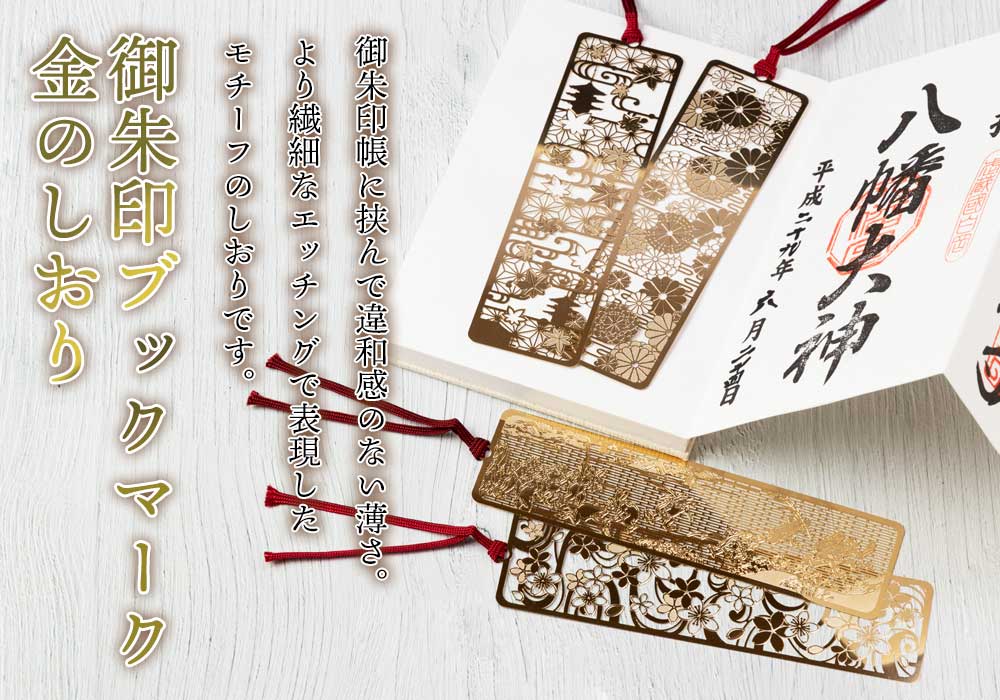 御朱印ブックマーク
金のしおり
御朱印帳に挟んで違和感のない薄さ。
より繊細なエッチングで表現した
モチーフのしおりです。
八幡大神
平成二十九年六月二十四日